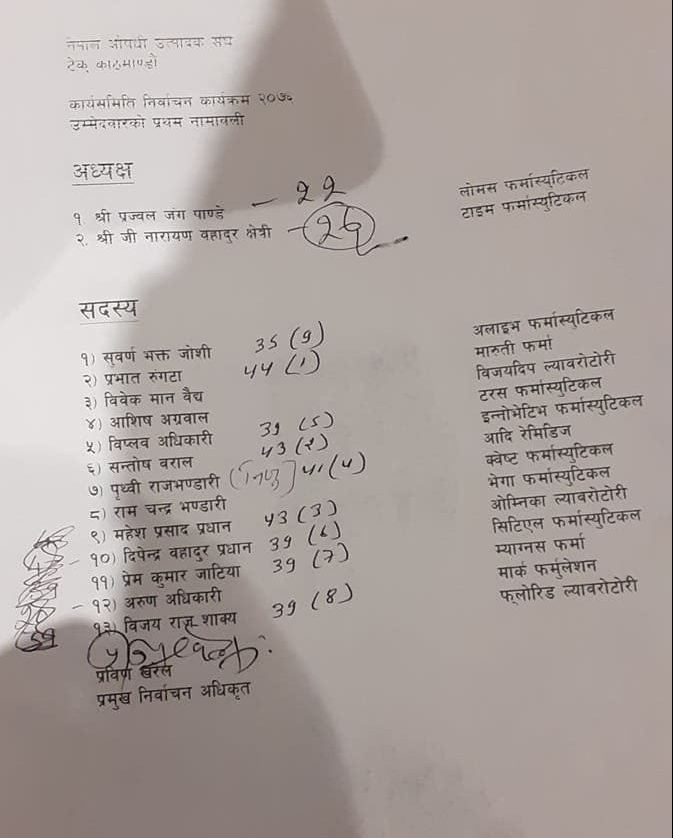 नेपाल औषधी उत्पादक संघ
टेकु काठमाण्डो
कार्यसमिति निर्वाचन कार्यक्रम २०७६
उम्मेदवारको प्रथम नामावली
अध्यक्ष
१ श्री प्रज्वल जंग पाण्डे – 22 लोमस फर्मास्युटिकल
२. श्री जी नारायण वहादुर क्षेत्री – टाइम फर्मास्युटिकल
सदस्य
१) सुवर्ण भक्त जोशी 35 (9) अलाइभ फर्मास्युटिकल
२) प्रभात रुंगटा 44 (1) मारुती फर्मा
३) विवेक मान वैद्य विजयदिप ल्यावरोटोरी
४) आशिष अग्रवाल टरस फर्मास्युटिकल
५) विप्लव अधिकारी 39 (5) इन्नोभेटिभ फर्मास्युटिकल
६) सन्तोष बराल 43 (2) आदि रेमिडिज
७) पृथ्वी राजभण्डारी 41 (4) क्वेष्ट फर्मास्युटिकल
८) राम चन्द्र भण्डारी भेगा फर्मास्युटिकल
९) महेश प्रसाद प्रधान 43 (3) ओम्निका ल्यावरोटोरी
१०) दिपेन्द्र वहादुर प्रधान 39 (6) सिटिएल फर्मास्युटिकल
११) प्रेम कुमार जाटिया 39 (7) म्याग्नस फर्मा
१२) अरुण अधिकारी मार्क फर्मुलेशन
१३) विजय राज शाक्य 39 (8) फ्लोरिड ल्यावरोटोरी
प्रविण खरेल
प्रमुख निर्वाचन अधिकृत